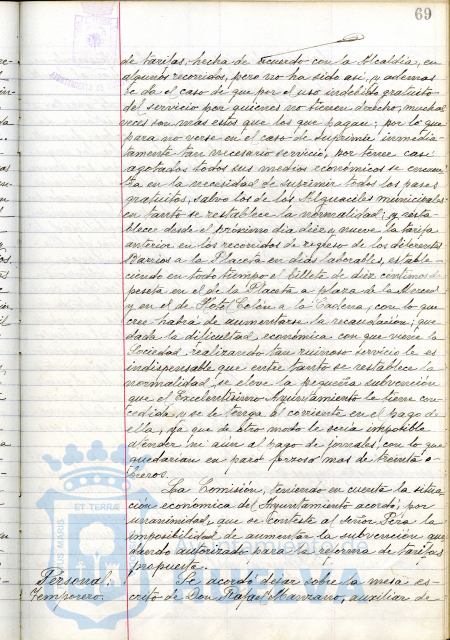 69
de tarifas, hecha de acuerdo con la Alcaldia, en
algunos recorridos, pero no ha sido asi, y además
se da el caso de que por el uso indebido gratuito
del servicio por quienes no tienen derecho, muchas
veces son más estos que los que pagan; por lo que
para no verse en el caso de suprimir inmedia-
tamente tan necesario servicio, por tener casi
agotados todos sus medios económicos se encuen-
tra en la necesidad de suprimir todos los pases
gratuitos, salvo los de los Alguaciles municipales
en tanto se restablece la normalidad; y resta-
blecer desde el próximo dia diez y nueve la tarifa
anterior en los recorridos de regreso de los diferentes
Barrios a la Placeta en dias laborables, estable-
ciendo en todo tiempo el billete de diez céntimos de
peseta en el de la Placeta a plaza de la Merced
y en el de Hotel Colón a la Cadena, con lo que
cree habrá de aumentarse la recaudación; que
dada la dificultad económica con que viene la
Sociedad realizando tan ruinoso servicio le es
indispensable que entre tanto se restablece la
normalidad, se eleve la pequeña subvención
que el Excelentisimo Ayuntamiento le tiene con-
cedida y se le tenga al corriente en el pago de
ella, ya que de otro modo le seria imposible
atender ni aún al pago de jornales, con lo que
quedarian en paro forzoso mas de treinta o-
breros.
La Comisión, teniendo en cuenta la situa-
ción económica del Ayuntamiento acordó, por
unanimidad, que se conteste al Señor Pera la
imposibilidad de aumentar la subvención que-
dando autorizado para la reforma de tarifas
propuesta.
Personal. Se acordó dejar sobre la mesa es-
Temporero. crito de Don Rafael Manzano, auxiliar de-
ET TERRÆ